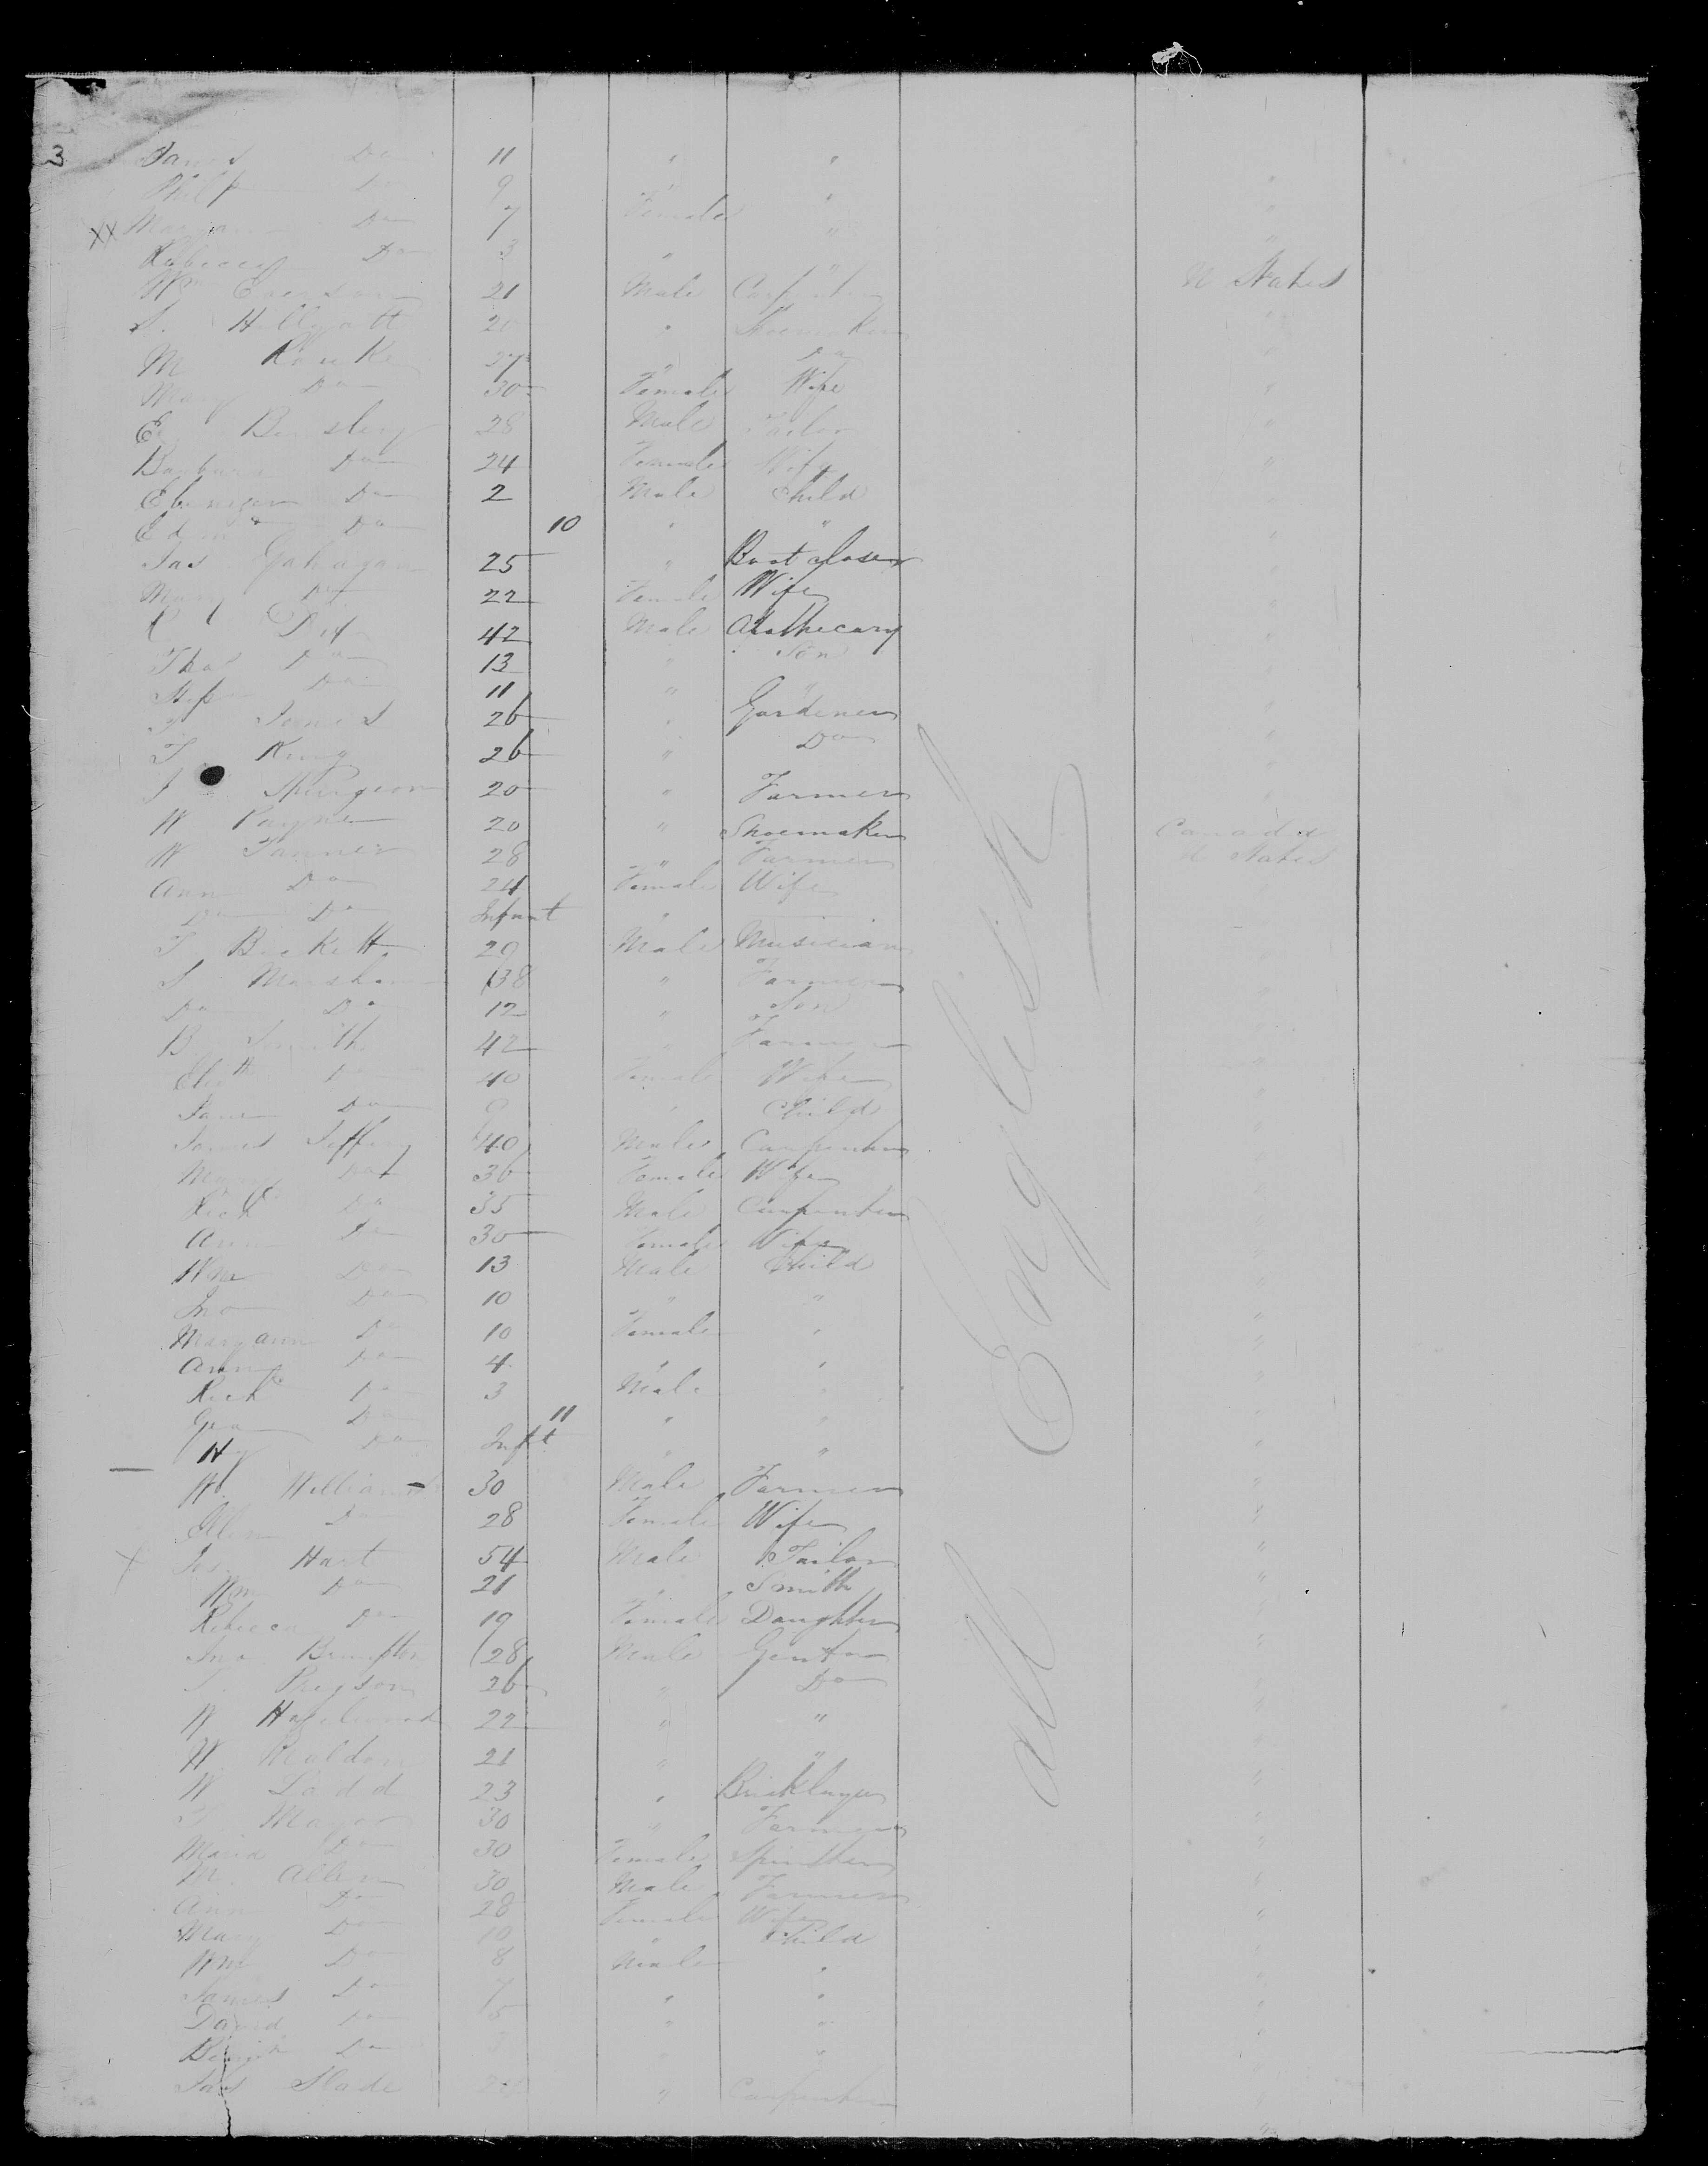 3 James Do 11 " "
Philp Do 9 " " "
XX Maryann Do 7 Female " "
Rebecca Do 3 " " "
Wm 21 Male Carpenter U States
S. Hillyatt 20 " Shoemaker "
M Rourke 27 " Do "
Mary Do 30 Female Wife "
E. Male Tailor "
Barbara Do 24 Female Wife "
Ebenezer Do 2 Male Child
Edmd Do 10 " " "
Jas Gahagan 25 " Boot closer "
Mary Do 22 Female Wife "
Dix 42 Male Apothecary "
Thos Do 13 " Son "
Do 11 " " "
James 26 " Gardener "
T King 26 " Do "
J Spurgeon 20 " Farmer "
W Payne 20 " Shoemaker Canada
W Tanner 28 " Farmer U States
Ann Do 24 Female Wife
Do Do Infant "
T Beckett 29 Male Musician "
S Marsham 38 " Farmer "
Do Do 12 " Son "
B Smith 42 " Farmer "
Elizth Do 40 Female Wife "
Jane Do 9 " Child "
James Jeffery 40 Male Carpenter "
Mary Do 36 Female Wife "
Richd Do 35 Male Carpenter "
Ann Do 30 Female Wife "
Wm Do 13 Male Child "
Jno Do 10 " " "
Maryann Do 10 Female " "
Ann Do 4 " " "
Richd Do 3 Male " "
Geo Do 11 " " "
Hy Do Inft " " "
W. Williams 30 Male Farmer "
Ellen Do 28 Female Wife "
X Jos. Hart 54 Male Tailor "
Wm Do 21 " Smith "
Rebecca Do 19 Female Daughter "
Jno Brumpton 28 Male Gentn "
26 " Do "
W Hazelwood 22 " " "
W. Maldon 21 " " "
W Ladd 23 " Bricklayer "
T Mayor 30 " Farmer "
Maria Do 30 Female Spinster "
M. Allen 30 Male Farmer "
Ann Do 28 Female Wife "
Mary Do 10 " Child
Wm Do 8 Male " "
James Do 7 " " "
David Do 5 " " "
Do " "
Jas Slade " Carpenter "
all English